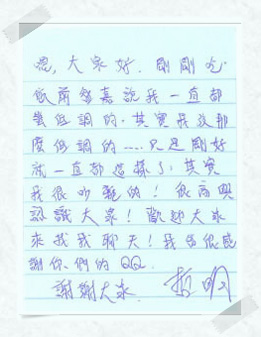 嗯,大家好.剛剛吃
飯前聲嘉說我一直都
蠻低調的.其實我沒那
麼低調的.....只是剛好
就一直都這樣了.其實
我很吵鬧的!很高興
認識大家!歡迎大家
來找我聊天!我會很感
謝你們的QQ.
謝謝大家.哲明